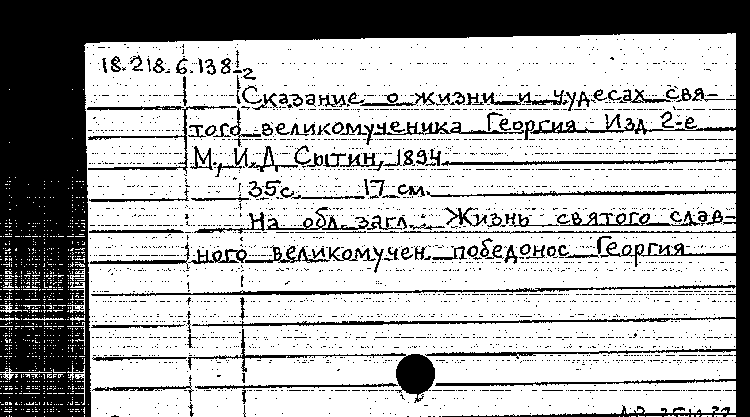 18.218.6.138-2
Сказание о жизни и чудесах свя-
того великомученика Георгия Изд 2-е
М, И.Д Сытин, 1894
35с. 17 см.
На обл. загл.: Жизнь святого слав-
ного великомучен. победонос Георгия